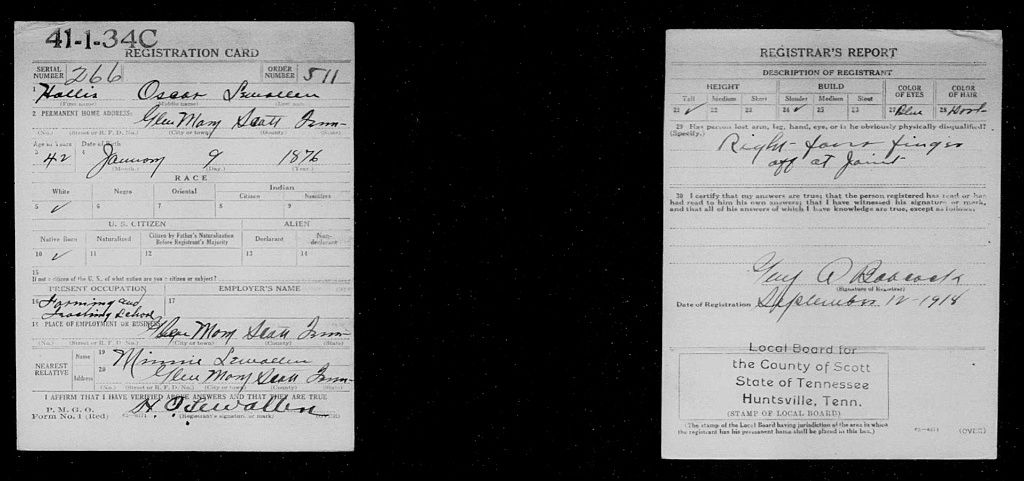 41-1-34C
REGISTRATION CARD
SERIAL NUMBER 266 ORDER NUMBER 511
1 Hollis Oscar Lewallen
(First name) (Middle name) (Last name)
2 PERMANENT HOME ADDRESS:
Glen Mary Scott Tenn
(No.) (Street or R. F. D. No.) (City or town) (County) (State)
Age in Years Date of Birth
3 42 4 January 9 1876
(Month.) (Day.) (Year.)
RACE
White Negro Oriental Indian
Citizen Noncitizen
5 ✓ 6 7 8 9
U. S. CITIZEN ALIEN
Native Born Naturalized Citizen by Father's Naturalization Before Registrant's Majority Declarant Non-declarant
10 ✓ 11 12 13 14
15
If not a citizen of the U. S., of what nation are you a citizen or subject?
PRESENT OCCUPATION EMPLOYER'S NAME
16 Farming and 17
Teaching School
18 PLACE OF EMPLOYMENT OR BUSINESS:
Glen Mary Scott Tenn
(No.) (Street or R. F. D. No.) (City or town) (County) (State)
NEAREST RELATIVE
Name 19 Minnie Lewallen
Address 20 Glen Mary Scott Tenn
(No.) (Street or R. F. D. No.) (City or town) (County) (State)
I AFFIRM THAT I HAVE VERIFIED ABOVE ANSWERS AND THAT THEY ARE TRUE
P. M. G. O.
Form No. 1 (Red) H. O. Lewallen
(Registrant's signature or mark)
REGISTRAR'S REPORT
DESCRIPTION OF REGISTRANT
HEIGHT BUILD COLOR OF EYES COLOR OF HAIR
Tall Medium Short Slender Medium Stout
21 ✓ 22 23 24 ✓ 25 26 27 Blue 28 Dark
29 Has person lost arm, leg, hand, eye, or is he obviously physically disqualified?
(Specify.)
Right fore finger
off at Joint
30 I certify that my answers are true; that the person registered has read or has
had read to him his own answers; that I have witnessed his signature or mark,
and that all of his answers of which I have knowledge are true, except as follows:
Guy A Babcock
(Signature of Registrar)
Date of Registration September 12-1918
Local Board for
the County of Scott
State of Tennessee
Huntsville, Tenn.
(STAMP OF LOCAL BOARD)
(The stamp of the Local Board having jurisdiction of the area in which
the registrant has his permanent home shall be placed in this box.)
(OVER)